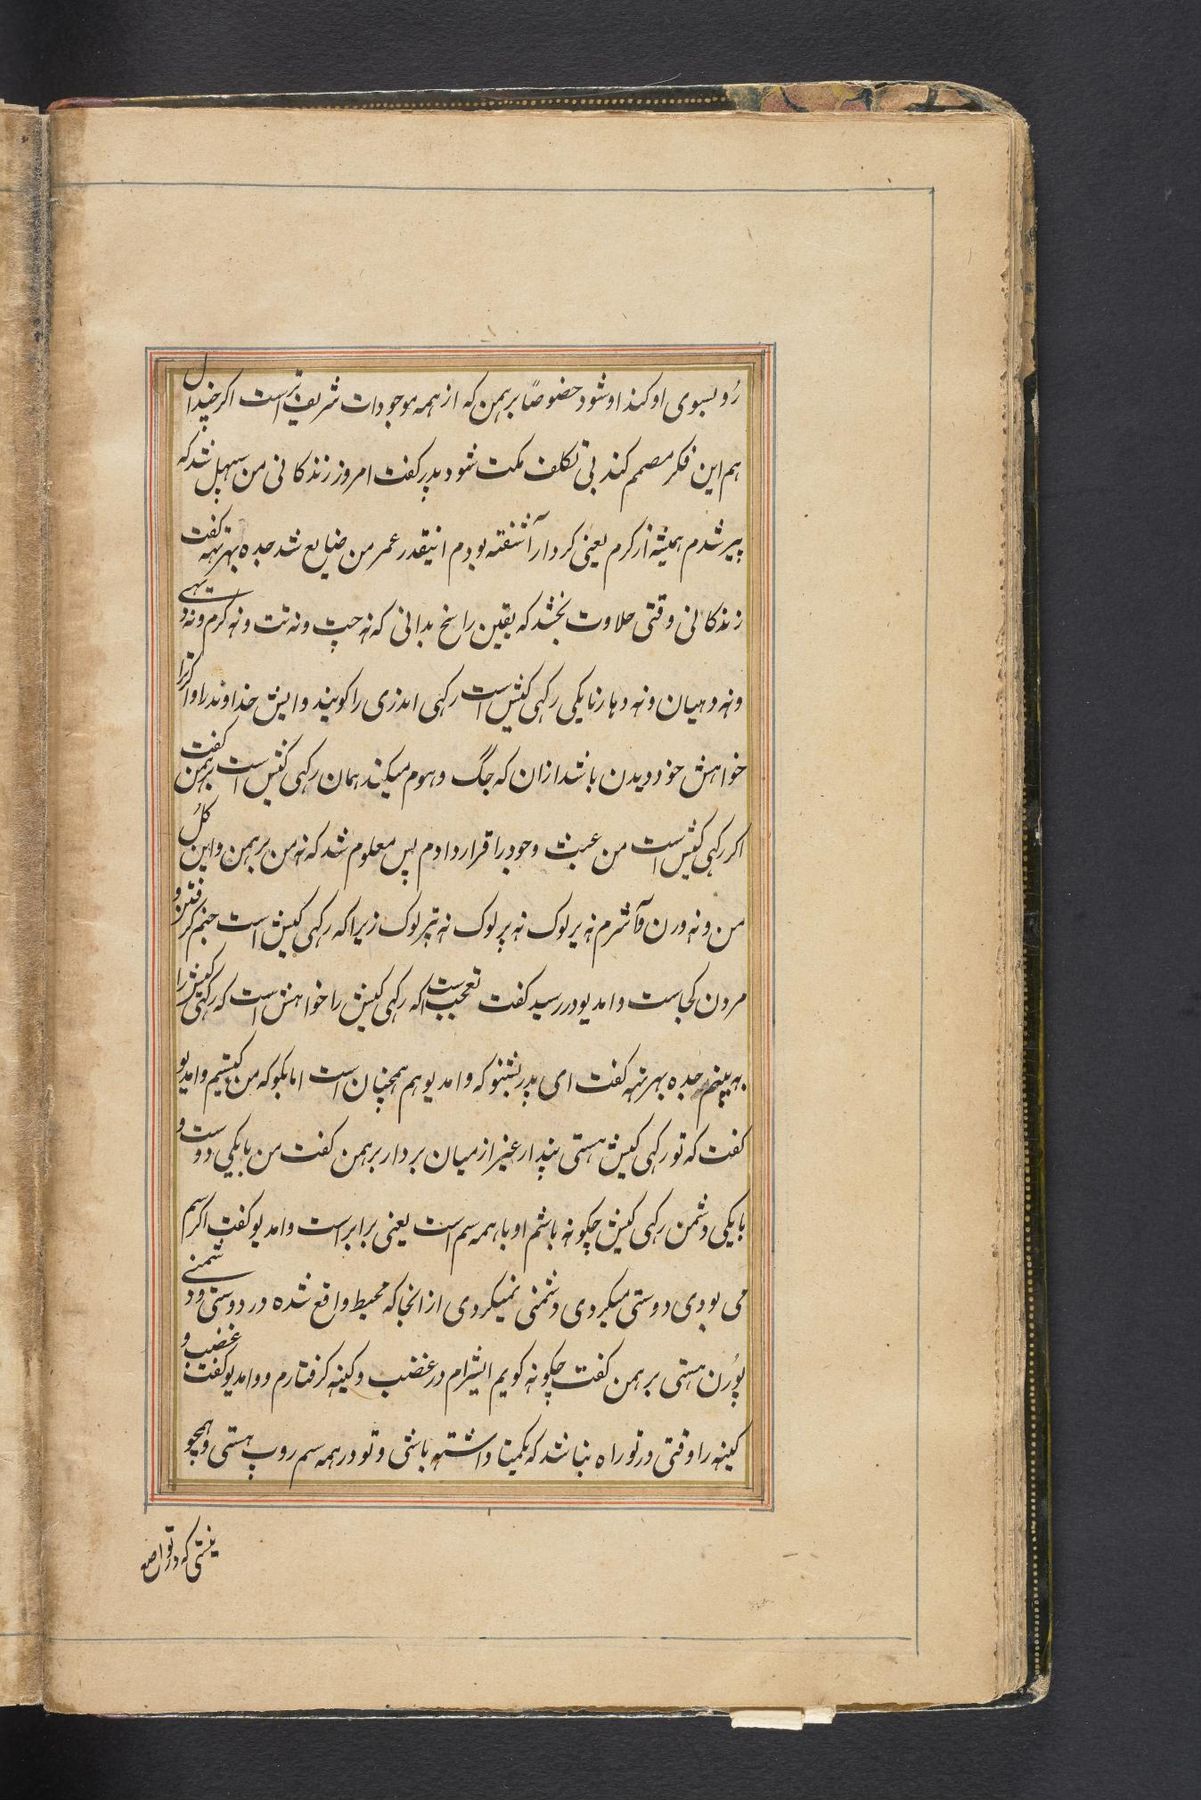 رُو بسوی او کند او شود خصوصًا برهمن که از همه موجودات شریفتر است اکر چندال
هم این فکر مصمم کند بی تکلف مکت شود پدر کفت امروز زندکانی من سپهل شد که
پیر شدم همیشه از کرم یعنی کردار آشفته بودم اینقدر عمر من ضایع شد جده بهرتهه کفت
زندکانی وقتی حلاوت بخشد که یقین راسخ بدانی که نه جپ و نه تت و نه کرم و نه
و نه دهیان و نه دهارنا یکی رکهی کیش است رکهی اندری را کویند و ایش خداوند را و انرا
خواهش خود دیدن باشد ازان که جگ و هوم میکند همان رکهی کیش است برهمن کفت
اکر رکهی کیش است من عبث وجود را قرار دادم پس معلوم شد که نه من برهمن و این کل
من و نه ورن و آشرم نه پرلوک نه پرلوک زیرا که رکهی کیش است جنم کرفتن و
مردن کجاست وامدیو در رسید کفت تعجب است که رکهی کیش را خواهش است که رکهی کیش را
به بینم جده بهرتهه کفت ای پدر بشنو که وامدیو هم همچنان است اما بکو که من کیستیم وامدیو
کفت که تو رکهی کیش هستی پندار غیر از میان بردار برهمن کفت من با یکی دوست و
با یکی دشمن رکهی کیش چکونه باشم او با همه سم است یعنی برابر است وامدیو کفت اکر سم
می بودی دوستی میکردی دشمنی نمیکردی از انجا که محیط واقع شده در دوستی و دشمنی
پُورن هستی برهمن کفت چکونه کویم ایشرام در غضب و کینه کرفتارم وامدیو کفت غضب و
کینه را وقتی در تو راه نباشد که یکمیتا داشته باشی و تو در همه سم روپ هستی و همچو
نیستی که در تو